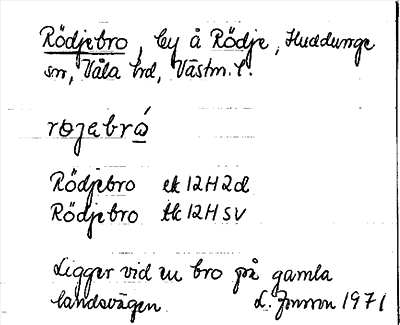 Rödjebro, by å Rödje, Huddunge
sn, Våla hd, Västm. l.
røjebró
Rödjebro ek 12H2d
Rödjebro tk 12HSV
Ligger vid en bro på gamla
landsvägen. L. 1971